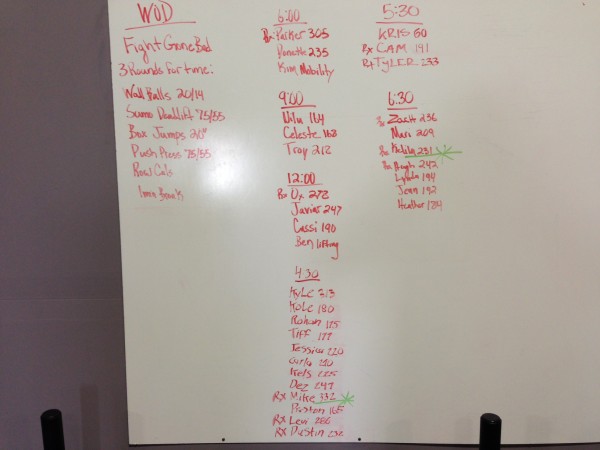 WOD
Fight Gone Bad
3 Rounds For time:
Wall Balls 20/14
Sumo Deadlift 75/55
Box Jumps
Push Press 75/55
Row Cals
1min Break
6:00
Rx Parker 305
235
Kim Mobility
9:00
114
Celeste 168
Troy 212
12:00
Rx 272
Javier 247
Cassi 190
Ben lifting
4:30
Kyle 313
Kole 180
Rohan 175
Tiff 177
Jessica 220
Carla 210
Kels 225
Dez 247
RX Mike 332
Preston 165
RX Levi 286
RX Dustin 232
5:30
KRIS 60
Rx CAM 191
Rx TYLER 233
6:30
Rx Zach 236
Mari 209
Rx 231
Rx 242
Lynda 194
Jenn 192
Heather 184